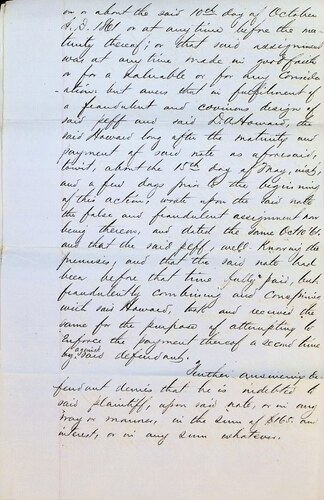 on or about the said 10th day of October
A.D. 1861 or at any time before the ma-
turity thereof; or that said assignment
was at any time made in good faith
or for a valuable or for any consider-
ation: but avers that in fulfillment of
a fraudulent and covinous design of
said plff and said D.A. Howard, the
said Howard long after the maturity and
payment of said note as aforesaid,
towit, about the 15th day of May, inst;
and a few days prior to the beginning
of this action, wrote upon the said note
the false and fraudulent assignment now
being thereon, and dated the same Oct 10 '61.
and that the said plff, well knowing the
premises, and that the said note had
been before that time fully paid, but
fraudulently combining and conspiring
with said Howard, took and received the
same for the purpose of attempting to
enforce the payment thereof a second time
against
said defendant.
Further answering de-
fendant denies that he is indebted to
said plaintiff, upon said note, or in any
way or manner, in the sum of $165. and
interest, or in any sum whatever.